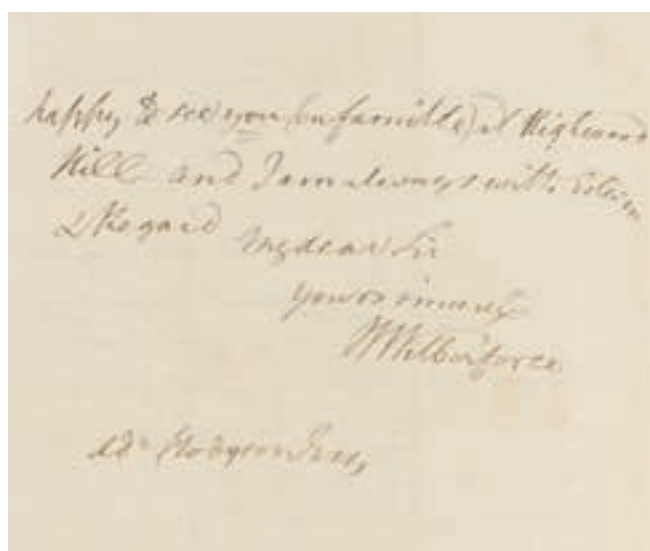 happy to see you (en famille) at Highwood
Hill and I am always with Esteem
& Regard My dear Sir
yours sincerely
W Wilberforce
Hodgson Esq